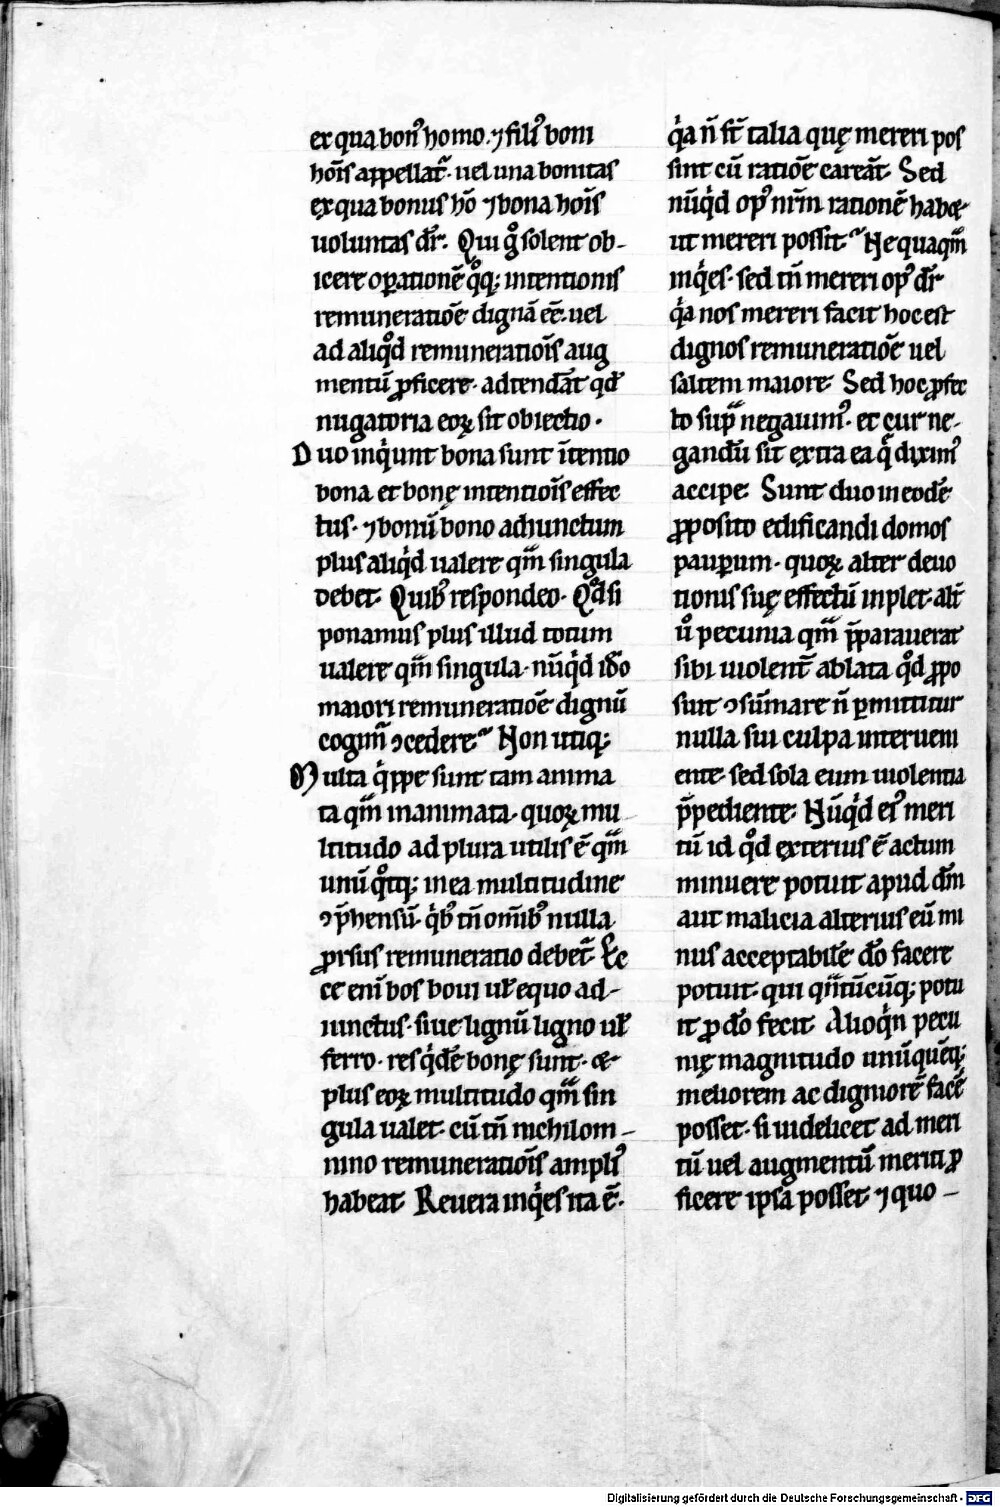 ex qua bon᾿ homo. ⁊ fili᾿ boni
hoı̄s appellat᷑. uel una bonitas
ex qua bonus hō ⁊ bona hoı̄s
uoluntas dr̄. Qui gͦ solent ob-
icere oꝑationē qͦq; intentionis
remuneratiōe dignā eē. uel
ad aliqͦd remuneratiōıs aug
mentū ꝓficere. adtendāt qd̄
nugatoria eoꝝ sit obiectio.
Duo inqͥunt bona sunt ı̄tentio
bona et bonę intentiōis effec
tus. ⁊ bonū bono adiunctum
plus aliqͥd ualere qm̄ singula
debet. Quibꝰ respondeo. Qͦd si
ponamus plus illud totum
ualere qm̄ singula. nūqͥd iđo
maiori remuneratiōe dignū
cogim̄ ꝯcedere? Non utiq;
Multa qͥppe sunt tam anima
ta qm̄ inanimata. quoꝝ mu
ltitudo ad plura utilis ē qm̄
unū qͦtq; in ea multitudine
ꝯp̄hensū. qͥbꝰ tn̄ om̄ibꝰ nulla
ꝓrsus remuneratio debet᷑. Ec
ce eni bos boui ul̄ equo ad-
iunctus. siue lignū ligno ul̄
ferro. res qͥdē bonę sunt. &
plus eoꝝ multitudo qm̄ sin
gula ualet. cū tn̄ nichil om-
nino remuneratiōıs ampli᾿
habeat. Reuera inqͥes ita ē.
qͥa n̄ st̄ talia quę mereri pos
sint cū ratiōe careāt. Sed
nūqͥd op᾿ nrm̄ rationē hab&
ut mereri possit? Nequaqm̄
inqͥes. sed tn̄ mereri op᾿ dr̄
qͥa nos mereri facit hoc est
dignos remuneratiōe uel
saltem maiore. Sed hoc ꝓfec
to sup̄ negauim᾿. et cur ne-
gandū sit extra ea q̄ dixim᾿
accipe. Sunt duo in eodē
ꝓposito edificandi domos
pauꝑum. quoꝝ alter deuo
tionis suę effectū inplet. alt᷑
ū pecunia qm̄ p̄parauerat
sibi uiolent᷑ ablata qͦd ꝓpo
suit ꝯsūmare n̄ ꝑmittitur
nulla sui culpa interueni
ente. sed sola eum uiolentia
p̄pediente. Nūqͥd ei᾿ meri
tū id qͦd exterius ē actum
minuere potuit apud dm̄
aut malicia alterius eū mi
nus acceptabilē dō facere
potuit. qui qn̄tūcūq; potu
it ꝓ dō fecit. Alioqͥn pecu
nię magnitudo unūquēq;
meliorem ac digniorē facē
posset. si uidelicet ad meri
tū uel augmentū meriti ꝓ
ficere ipsa posset ⁊ quo-
Digitalisierung gefördert durch die Deutsche Forschungsgemeinschaft - DFG